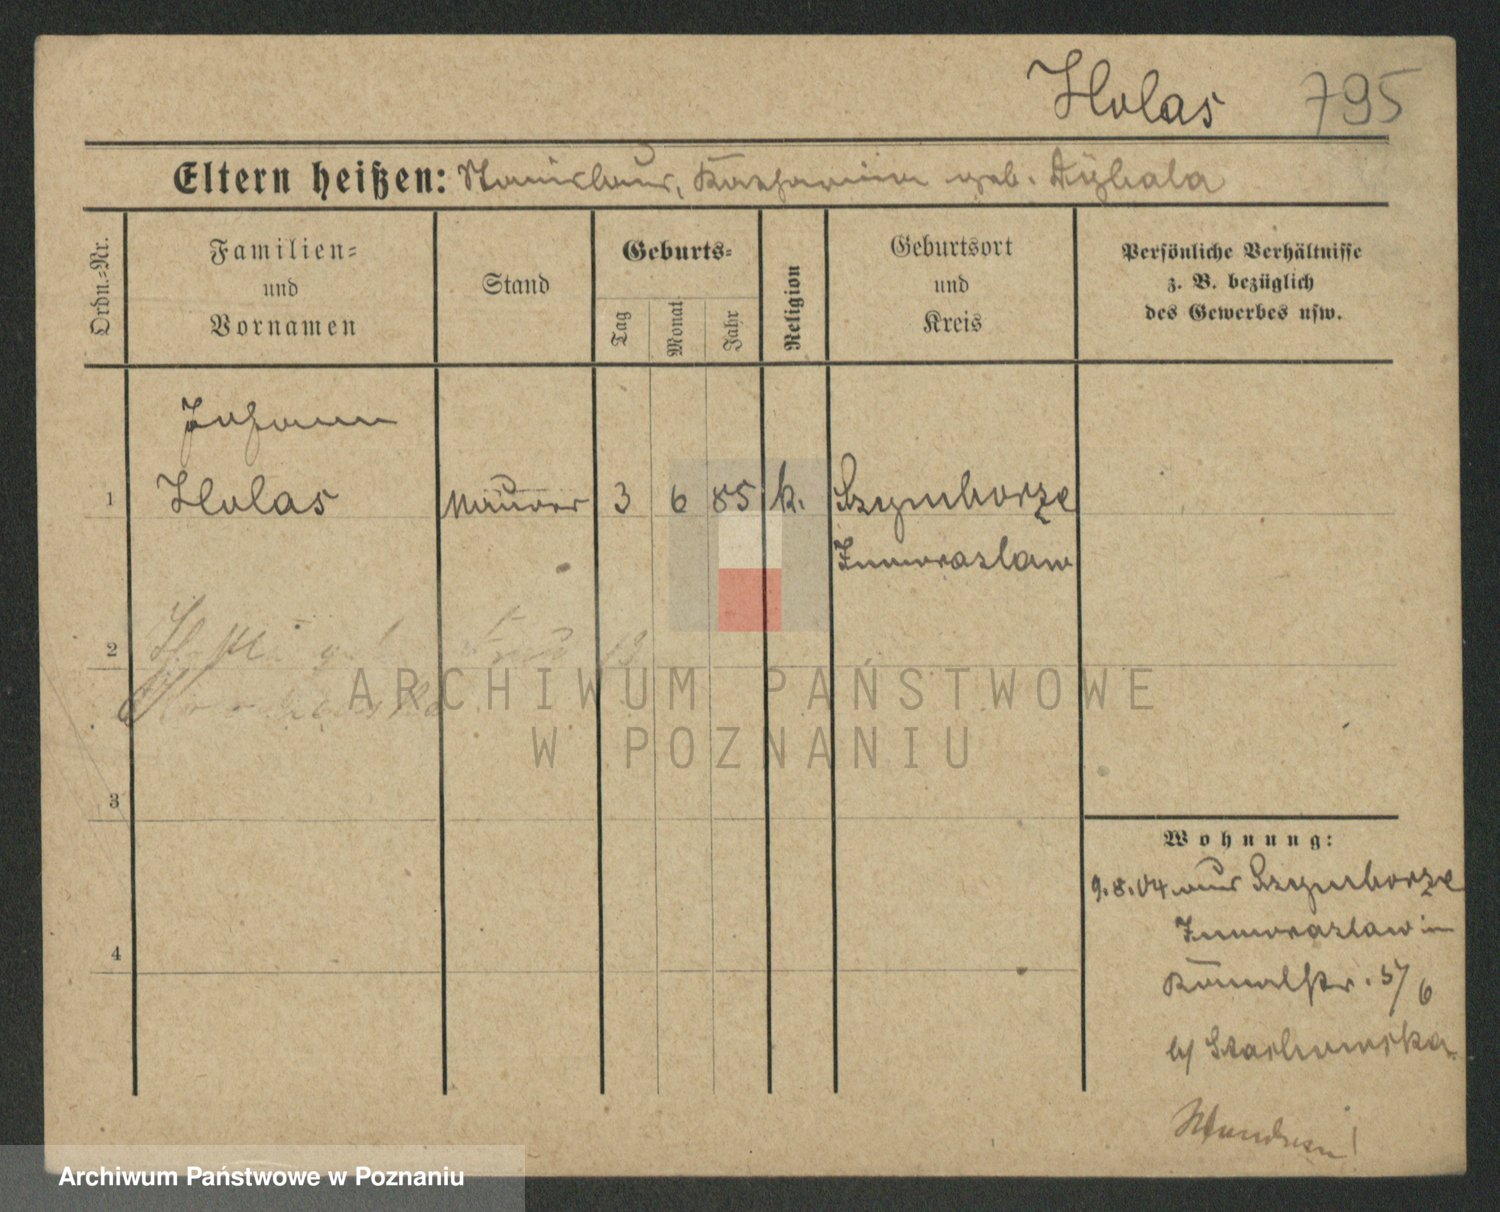 Holas 795
Eltern heißen: Stanislaus, Katharina geb. Dybala
Ordn.=Nr.
Familien=
und
Vornamen
Stand
Geburts=
Tag
Monat
Jahr
Religion
Geburtsort
und
Kreis
Persönliche Verhältnisse
z. B. bezüglich
des Gewerbes usw.
Johann
1 Holas Maurer 3 6 85 k. Szymborze
Inowrazlaw
2
3
4
Wohnung:
9.8.04 aus Szymborze
Inowrazlaw in
Kanalstr. 5/6
b/ Stachowska.
ARCHIWUM PAŃSTWOWE
W POZNANIU
Archiwum Państwowe w Poznaniu